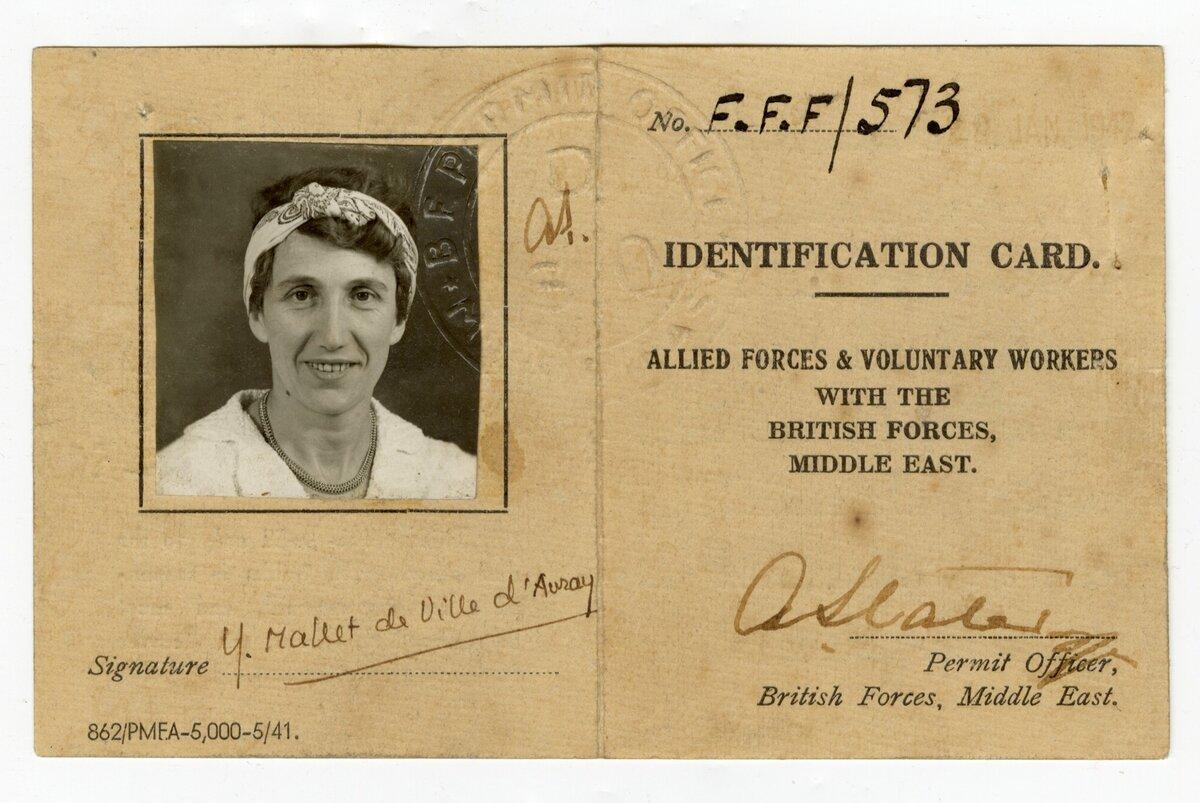 as.
Y. Mallet de Ville d'Avray
Signature
862/PMEA-5,000-5/41.
No. F.F.F/573
IDENTIFICATION CARD.
ALLIED FORCES & VOLUNTARY WORKERS
WITH THE
BRITISH FORCES,
MIDDLE EAST.
A Slater
Permit Officer,
British Forces, Middle East.